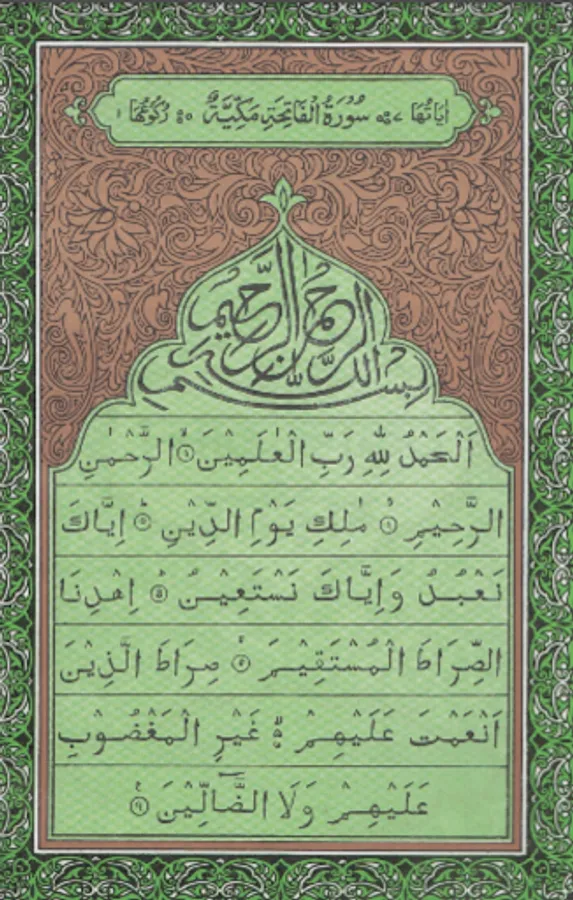 اٰيَاتُهَا ٧ سُورَةُ الْفَاتِحَةِ مَكِّيَّةٌ ٥ رُكُوْعُهَا ١
بِسْمِ اللهِ الرَّحْمٰنِ الرَّحِيْمِ
اَلْحَمْدُ لِلّٰهِ رَبِّ الْعٰلَمِيْنَ ۙ١ الرَّحْمٰنِ
الرَّحِيْمِ ۙ٢ مٰلِكِ يَوْمِ الدِّيْنِ ؕ٣ اِيَّاكَ
نَعْبُدُ وَاِيَّاكَ نَسْتَعِيْنُ ؕ٤ اِهْدِنَا
الصِّرَاطَ الْمُسْتَقِيْمَ ۙ٥ صِرَاطَ الَّذِيْنَ
اَنْعَمْتَ عَلَيْهِمْ ۙ٦ غَيْرِ الْمَغْضُوْبِ
عَلَيْهِمْ وَلَا الضَّآلِّيْنَ ٧